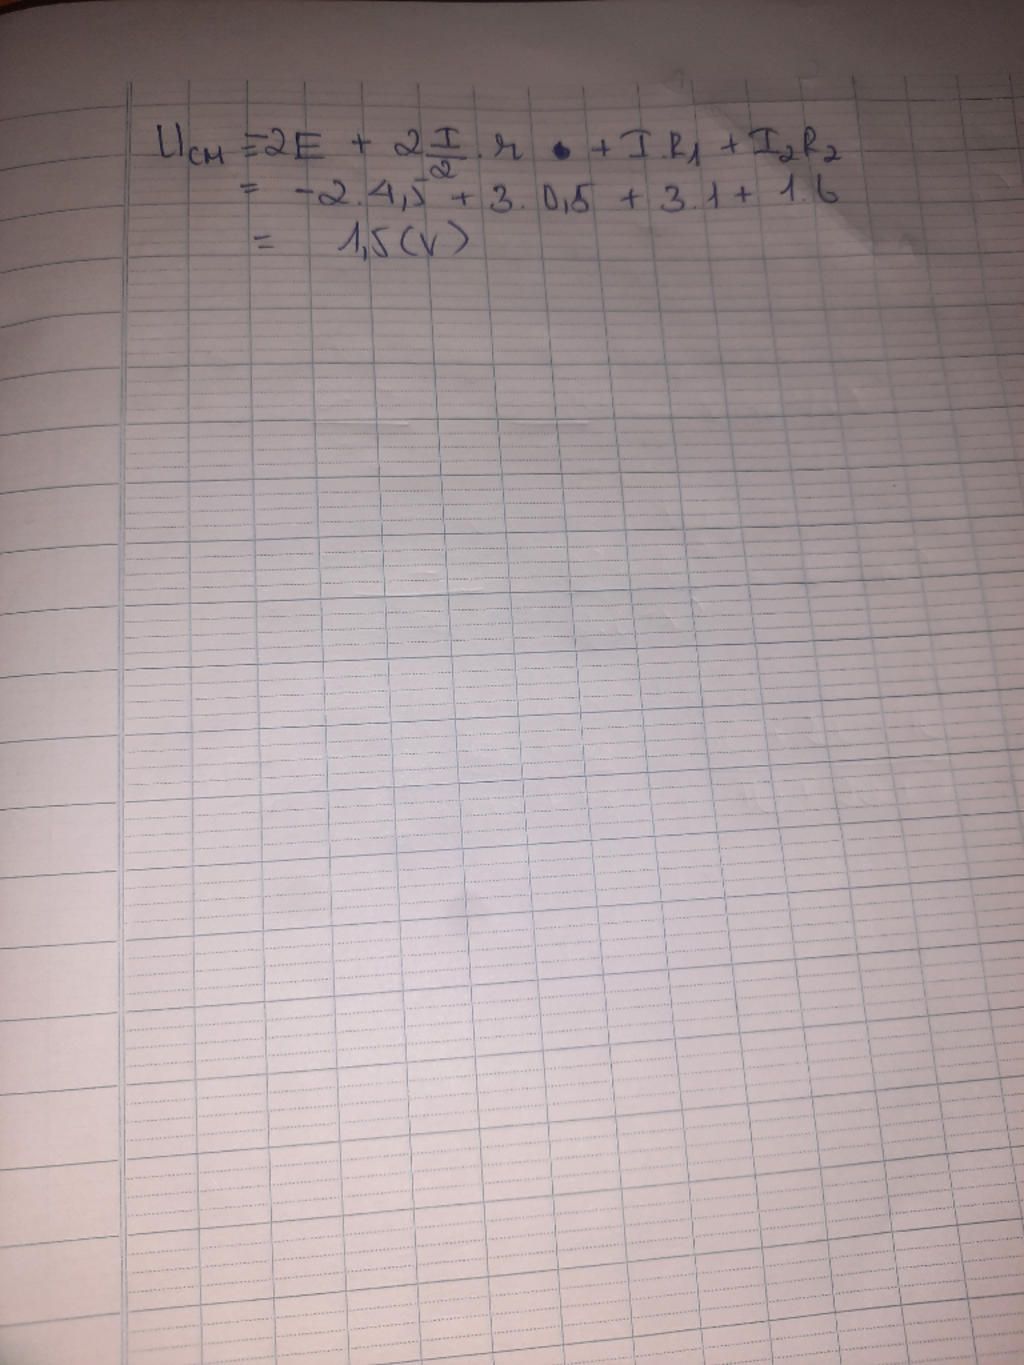 U_CM = -2E + 2 I/2 . r + I.R_1 + I_2R_2
= -2.4,5 + 3.0,5 + 3.1 + 1.6
= 1,5(V)